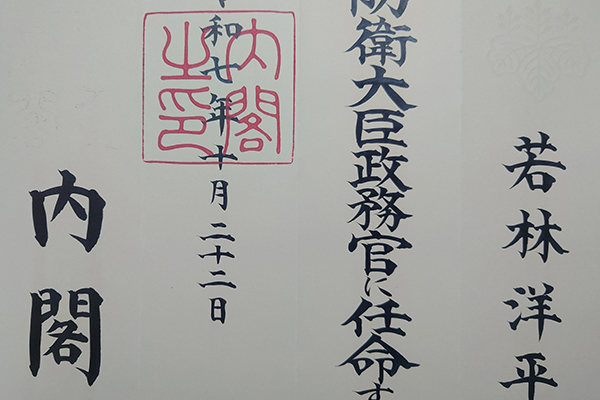 若林洋平
防衛大臣政務官に任命す
和七年十月二十二日
内閣之印
内閣